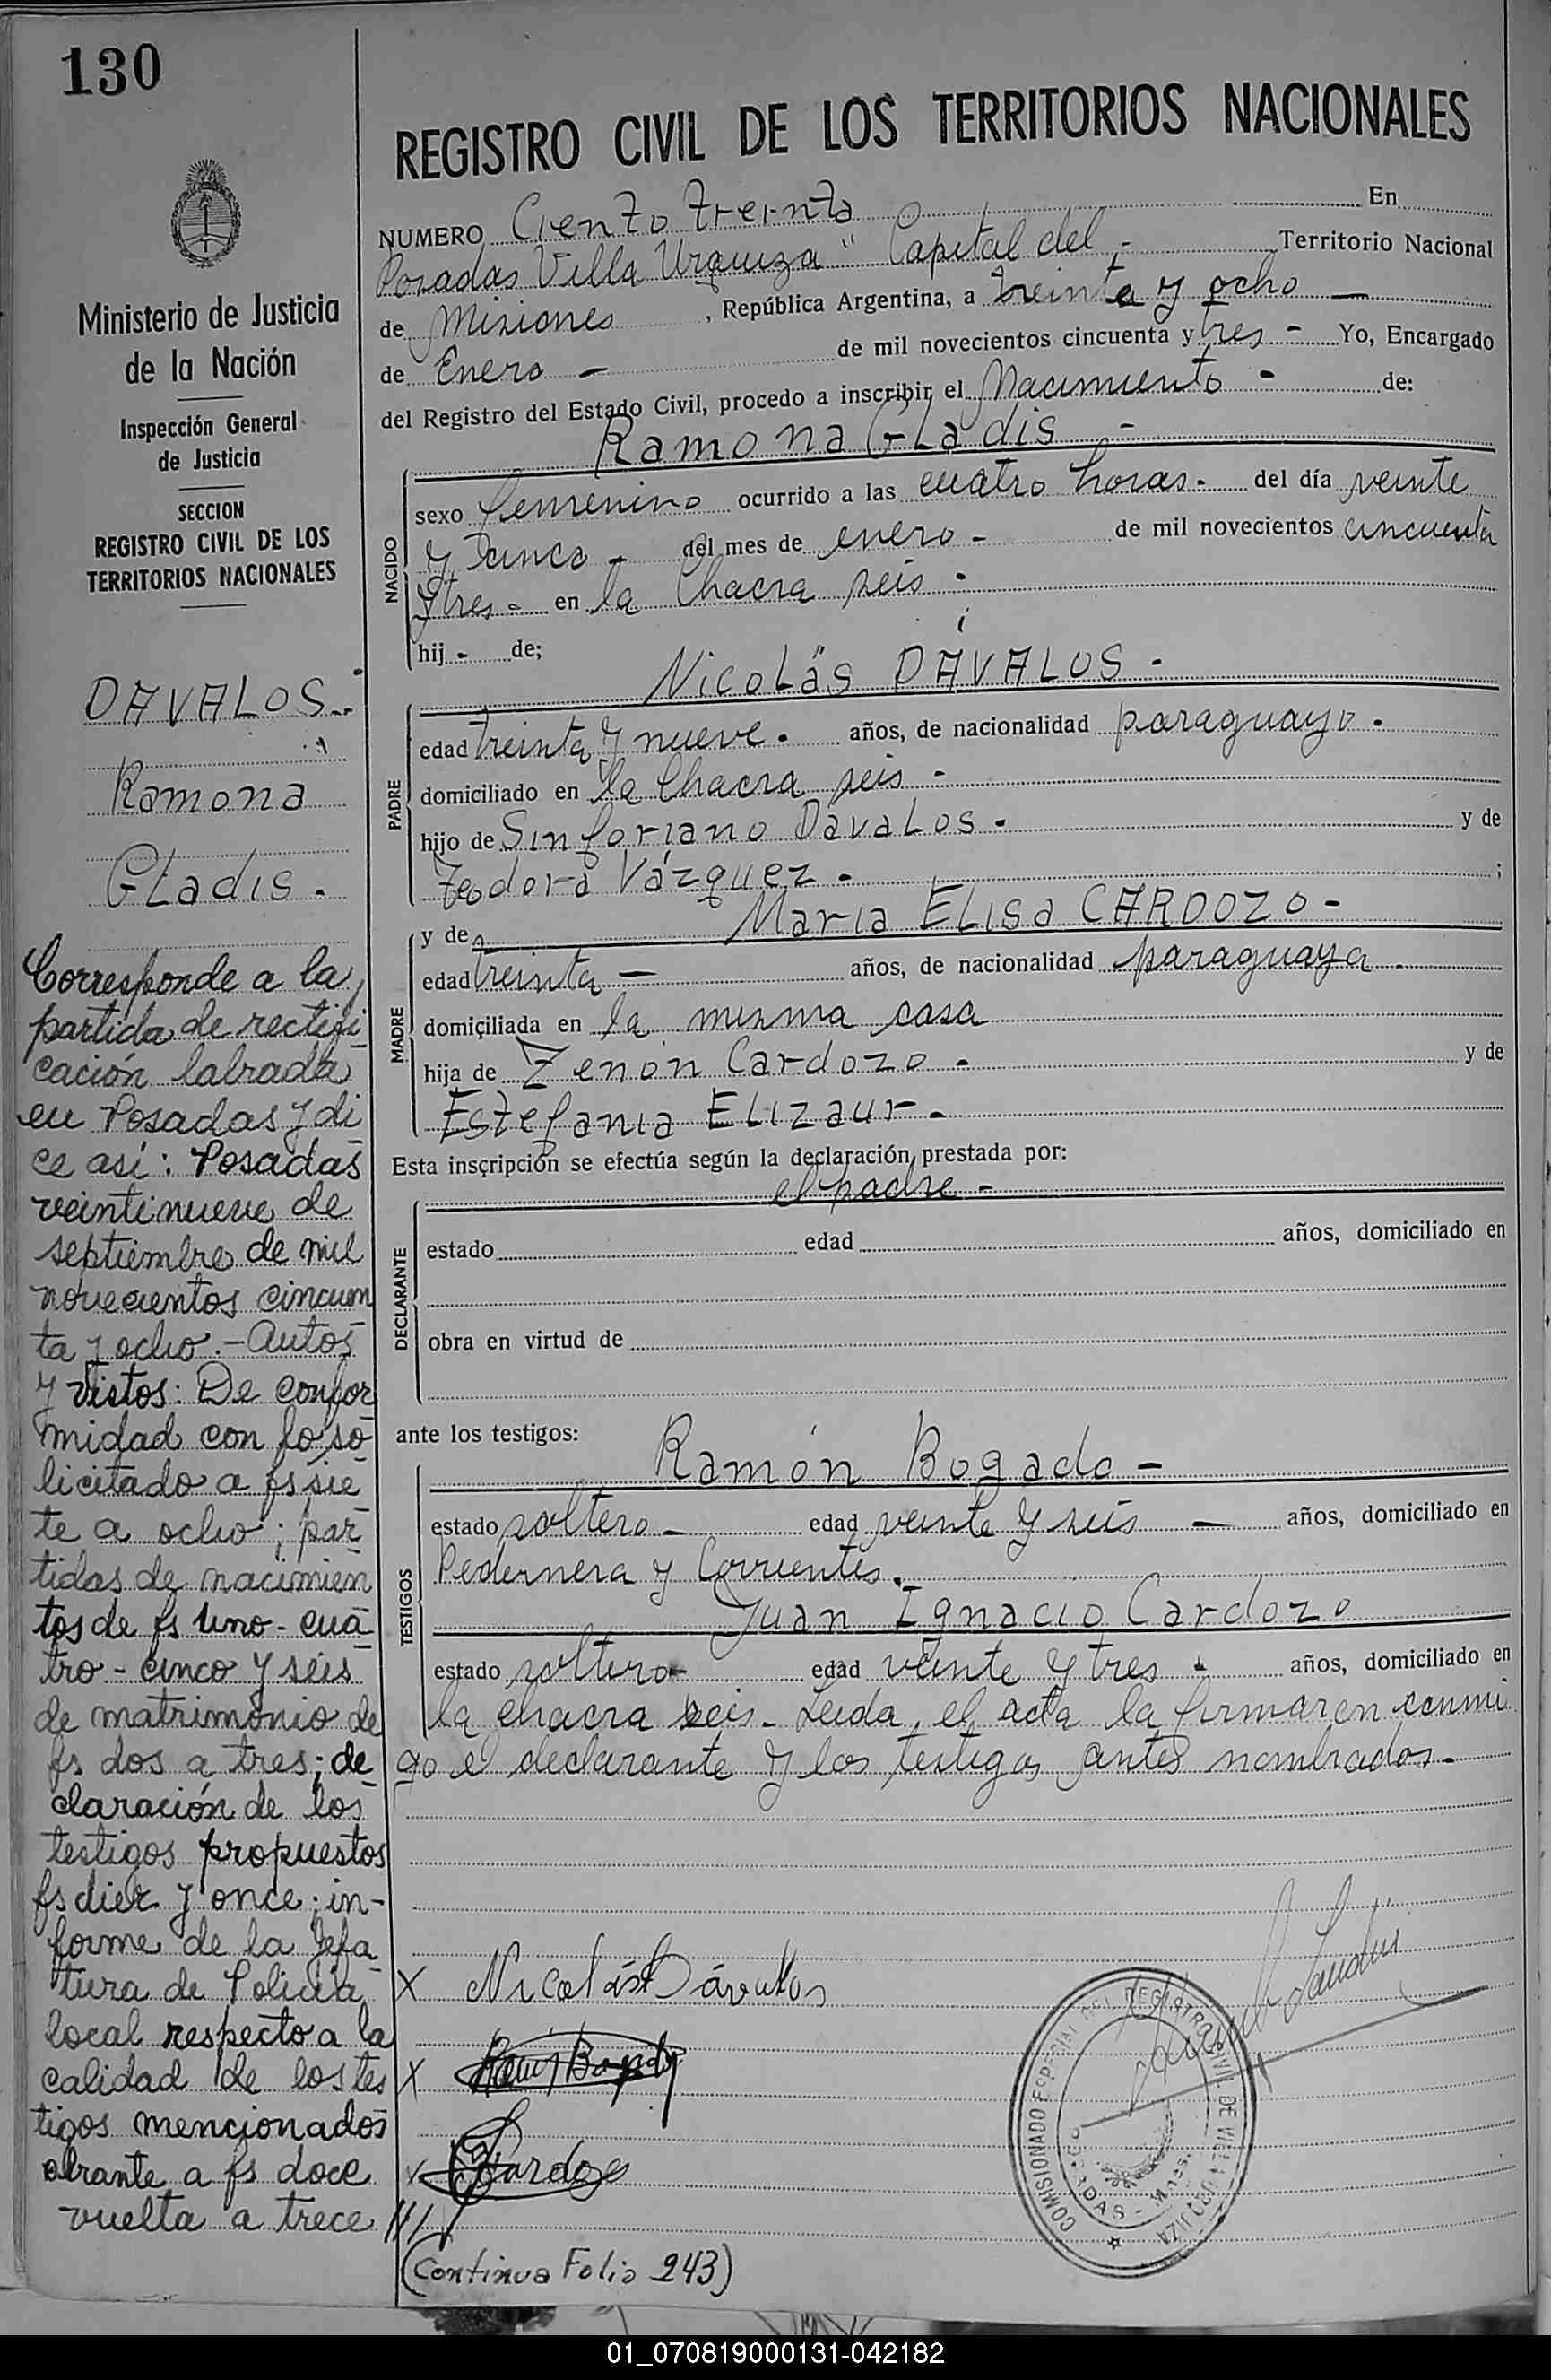 130
Ministerio de Justicia
de la Nación
Inspección General
de Justicia
SECCION
REGISTRO CIVIL DE LOS
TERRITORIOS NACIONALES
DAVALOS.-
Ramona
GLadis.
Corresponde a la
partida de rectifi
cación labrada
en Posadas y di
ce así: Posadas
veintinueve de
septiembre de mil
novecientos cincuen
ta y ocho.- Autos
y vistos: De confor
midad con lo so
licitado a fs sie
te a ocho; par
tidas de nacimien
tos de fs uno - cua
tro - cinco y seis
de matrimonio de
fs dos a tres; de
claración de los
testigos propuestos
fs diez y once; in-
forme de la Jefa
tura de Policia
local respecto a la
calidad de los tes
tigos mencionados
obrante a fs doce
vuelta a trece ///
REGISTRO CIVIL DE LOS TERRITORIOS NACIONALES
NUMERO Ciento treinta En
Posadas Villa Urquiza" Capital del - Territorio Nacional
de Misiones, República Argentina, a treinta y ocho —
de Enero - de mil novecientos cincuenta y tres - Yo, Encargado
del Registro del Estado Civil, procedo a inscribir el Nacimiento - de:
Ramona GLadis -
NACIDO
sexo femenino ocurrido a las cuatro horas.- del día veinte
y cinco - del mes de enero - de mil novecientos cincuenta
y tres - en la Chacra seis -
hij - de;
NicoLás DÁVALOS -
PADRE
edad treinta y nueve. años, de nacionalidad paraguayo.
domiciliado en la Chacra seis -
hijo de Sinforiano DávaLos - y de
Teodora Vázquez - ;
y de María ELisa CARDOZO -
MADRE
edad treinta — años, de nacionalidad paraguaya
domiciliada en la misma casa
hija de Zenón Cardozo - y de
Estefania ELizaur -
Esta inscripción se efectúa según la declaración prestada por:
el padre -
DECLARANTE
estado edad años, domiciliado en
obra en virtud de
ante los testigos:
Ramón Bogado -
TESTIGOS
estado soltero - edad veinte y seis — años, domiciliado en
Pedernera y Corrientes.
Juan Ignacio Cardozo
estado soltero - edad veinte y tres - años, domiciliado en
la chacra seis - Leida, el acta la firmaron conmi
go el declarante y los testigos antes nombrados -
X Nicolás Dávalos
X
Cardozo
COMISIONADO ESPECIAL DEL REGISTRO CIVIL DE VILLA URQUIZA
POSADAS - Mnes.
(Continua Folio 243)
01_070819000131-042182